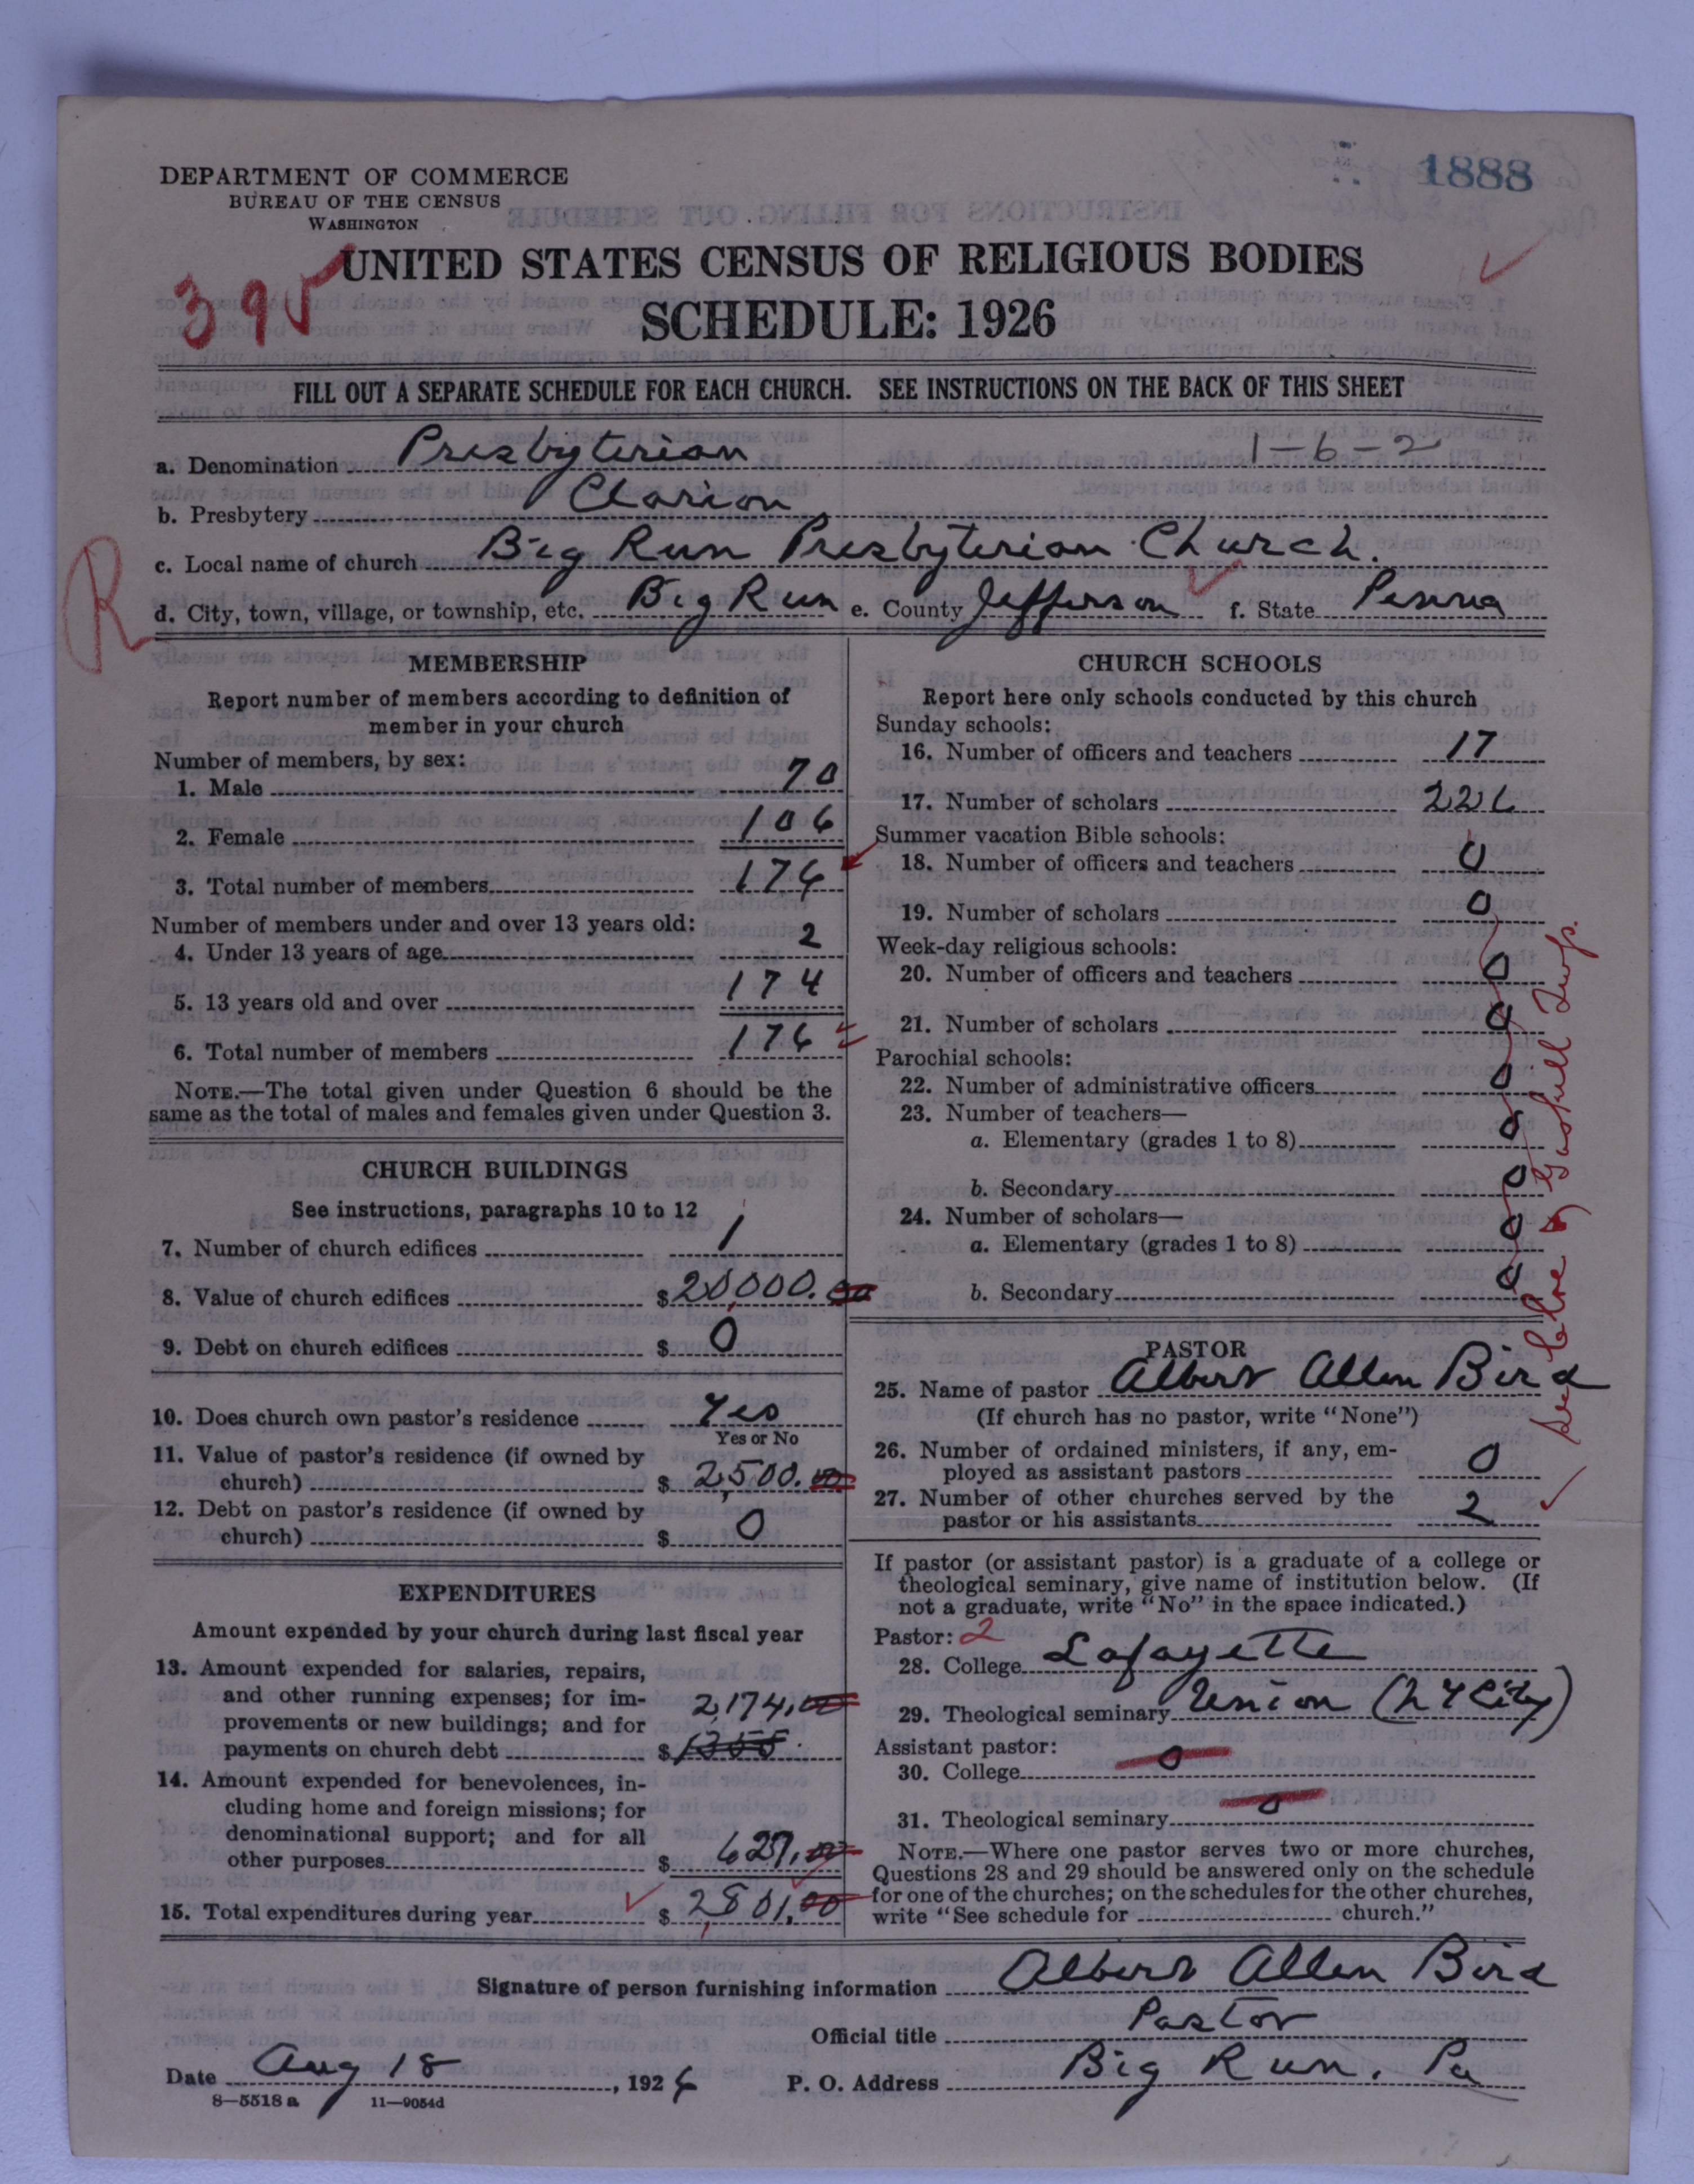 1888
DEPARTMENT OF COMMERCE
BUREAU OF THE CENSUS
WASHINGTON
395
UNITED STATES CENSUS OF RELIGIOUS BODIES
SCHEDULE: 1926
FILL OUT A SEPARATE SCHEDULE FOR EACH CHURCH. SEE INSTRUCTIONS ON THE BACK OF THIS SHEET
a. Denomination Presbyterian 1-6-2
b. Presbytery Clarion
c. Local name of church Big Run Presbyterian Church.
R
d. City, town, village, or township, etc. Big Run e. County Jefferson f. State Penna
MEMBERSHIP
Report number of members according to definition of
member in your church
Number of members, by sex:
1. Male 70
2. Female 106
3. Total number of members 176
Number of members under and over 13 years old:
4. Under 13 years of age 2
5. 13 years old and over 174
6. Total number of members 176
NOTE.—The total given under Question 6 should be the
same as the total of males and females given under Question 3.
CHURCH BUILDINGS
See instructions, paragraphs 10 to 12
7. Number of church edifices 1
8. Value of church edifices $ 20,000.00
9. Debt on church edifices $ 0
10. Does church own pastor's residence Yes
Yes or No
11. Value of pastor's residence (if owned by
church) $ 2,500.00
12. Debt on pastor's residence (if owned by
church) $ 0
EXPENDITURES
Amount expended by your church during last fiscal year
13. Amount expended for salaries, repairs,
and other running expenses; for im-
provements or new buildings; and for 2,174.00
payments on church debt $ 1355
14. Amount expended for benevolences, in-
cluding home and foreign missions; for
denominational support; and for all
other purposes $ 627.00
15. Total expenditures during year $ 2,801.00
CHURCH SCHOOLS
Report here only schools conducted by this church
Sunday schools:
16. Number of officers and teachers 17
17. Number of scholars 226
Summer vacation Bible schools:
18. Number of officers and teachers 0
19. Number of scholars 0
Week-day religious schools:
20. Number of officers and teachers 0
21. Number of scholars 0
Parochial schools:
22. Number of administrative officers 0
23. Number of teachers—
a. Elementary (grades 1 to 8) 0
b. Secondary 0
24. Number of scholars—
a. Elementary (grades 1 to 8) 0
b. Secondary 0
Twp.
PASTOR
25. Name of pastor Albert Allen Bird
(If church has no pastor, write "None")
26. Number of ordained ministers, if any, em-
ployed as assistant pastors 0
27. Number of other churches served by the
pastor or his assistants 2
If pastor (or assistant pastor) is a graduate of a college or
theological seminary, give name of institution below. (If
not a graduate, write "No" in the space indicated.)
Pastor: 2
28. College Lafayette
29. Theological seminary Union (N Y City)
Assistant pastor:
30. College 0
31. Theological seminary 0
NOTE.—Where one pastor serves two or more churches,
Questions 28 and 29 should be answered only on the schedule
for one of the churches; on the schedules for the other churches,
write "See schedule for church."
Signature of person furnishing information Albert Allen Bird
Official title Pastor
Date Aug 18, 1926 P. O. Address Big Run, Pa
8—5518 a 11—9054d